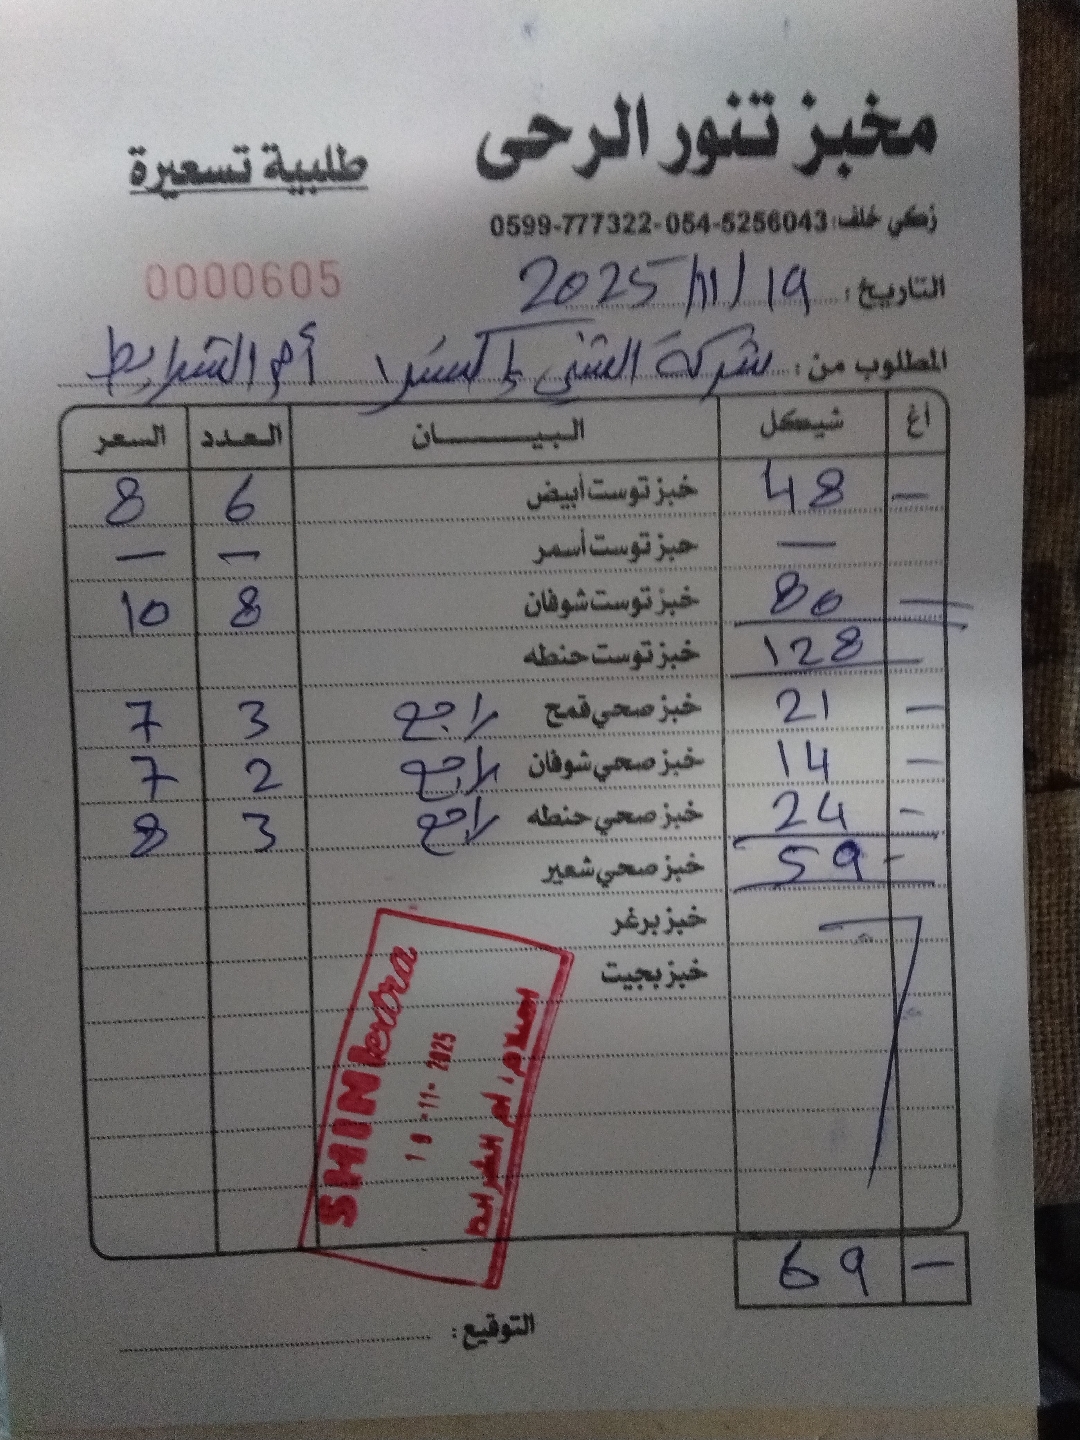 مخبز تنور الرحى
طلبية تسعيرة
زكي خلف: 054-5256043-0599-777322
0000605
التاريخ: 19/11/2025
المطلوب من: شركة الشني اكسترا أم الشرايط
أغ شيكل البيـــــــان العدد السعر
— 48 خبز توست أبيض 6 8
— خبز توست أسمر — —
— 80 خبز توست شوفان 8 10
128 خبز توست حنطه
— 21 خبز صحي قمح راجع 3 7
— 14 خبز صحي شوفان راجع 2 7
— 24 خبز صحي حنطه راجع 3 8
— 59 خبز صحي شعير
خبز برغر
خبز بجيت
SHINI extra
19-11-2025
احلام، ام الشرايط
— 69
التوقيع: